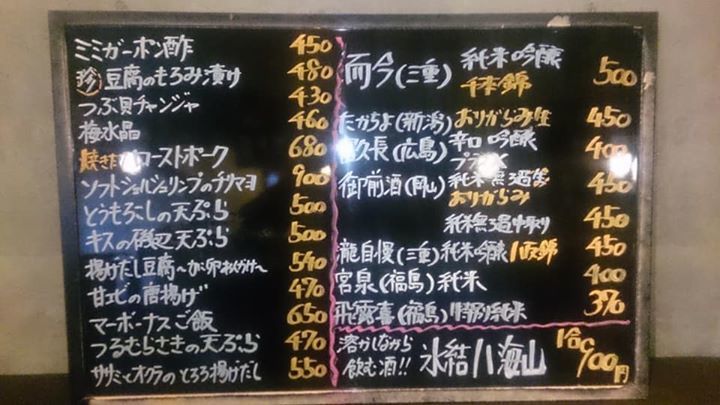 ミミガーポン酢 450
珍 豆腐のもろみ漬け 480
つぶ貝チャンジャ 430
梅水晶 460
焼きたて ローストポーク 680
ソフトシェルシュリンプのチリマヨ 900
とうもろこしの天ぷら 500
キスの磯辺天ぷら 500
揚げだし豆腐 540
甘エビの唐揚げ 470
マーボーナスご飯 650
つるむらさきの天ぷら 470
ササミとオクラのとろろ揚げだし 550
而今(三重) 純米吟醸 500
千本錦
たかちよ(新潟) おりがらみ生 450
富久長(広島) 辛口 吟醸 400
御前酒(岡山) 純米無ろ過生 450
おりがらみ
純米無ろ過中取り 450
瀧自慢(三重) 純米吟醸 八反錦 450
宮泉(福島) 純米 400
飛露喜(福島) 特別純米 390
溶かしながら
飲む酒!! 氷結八海山 1合 900円